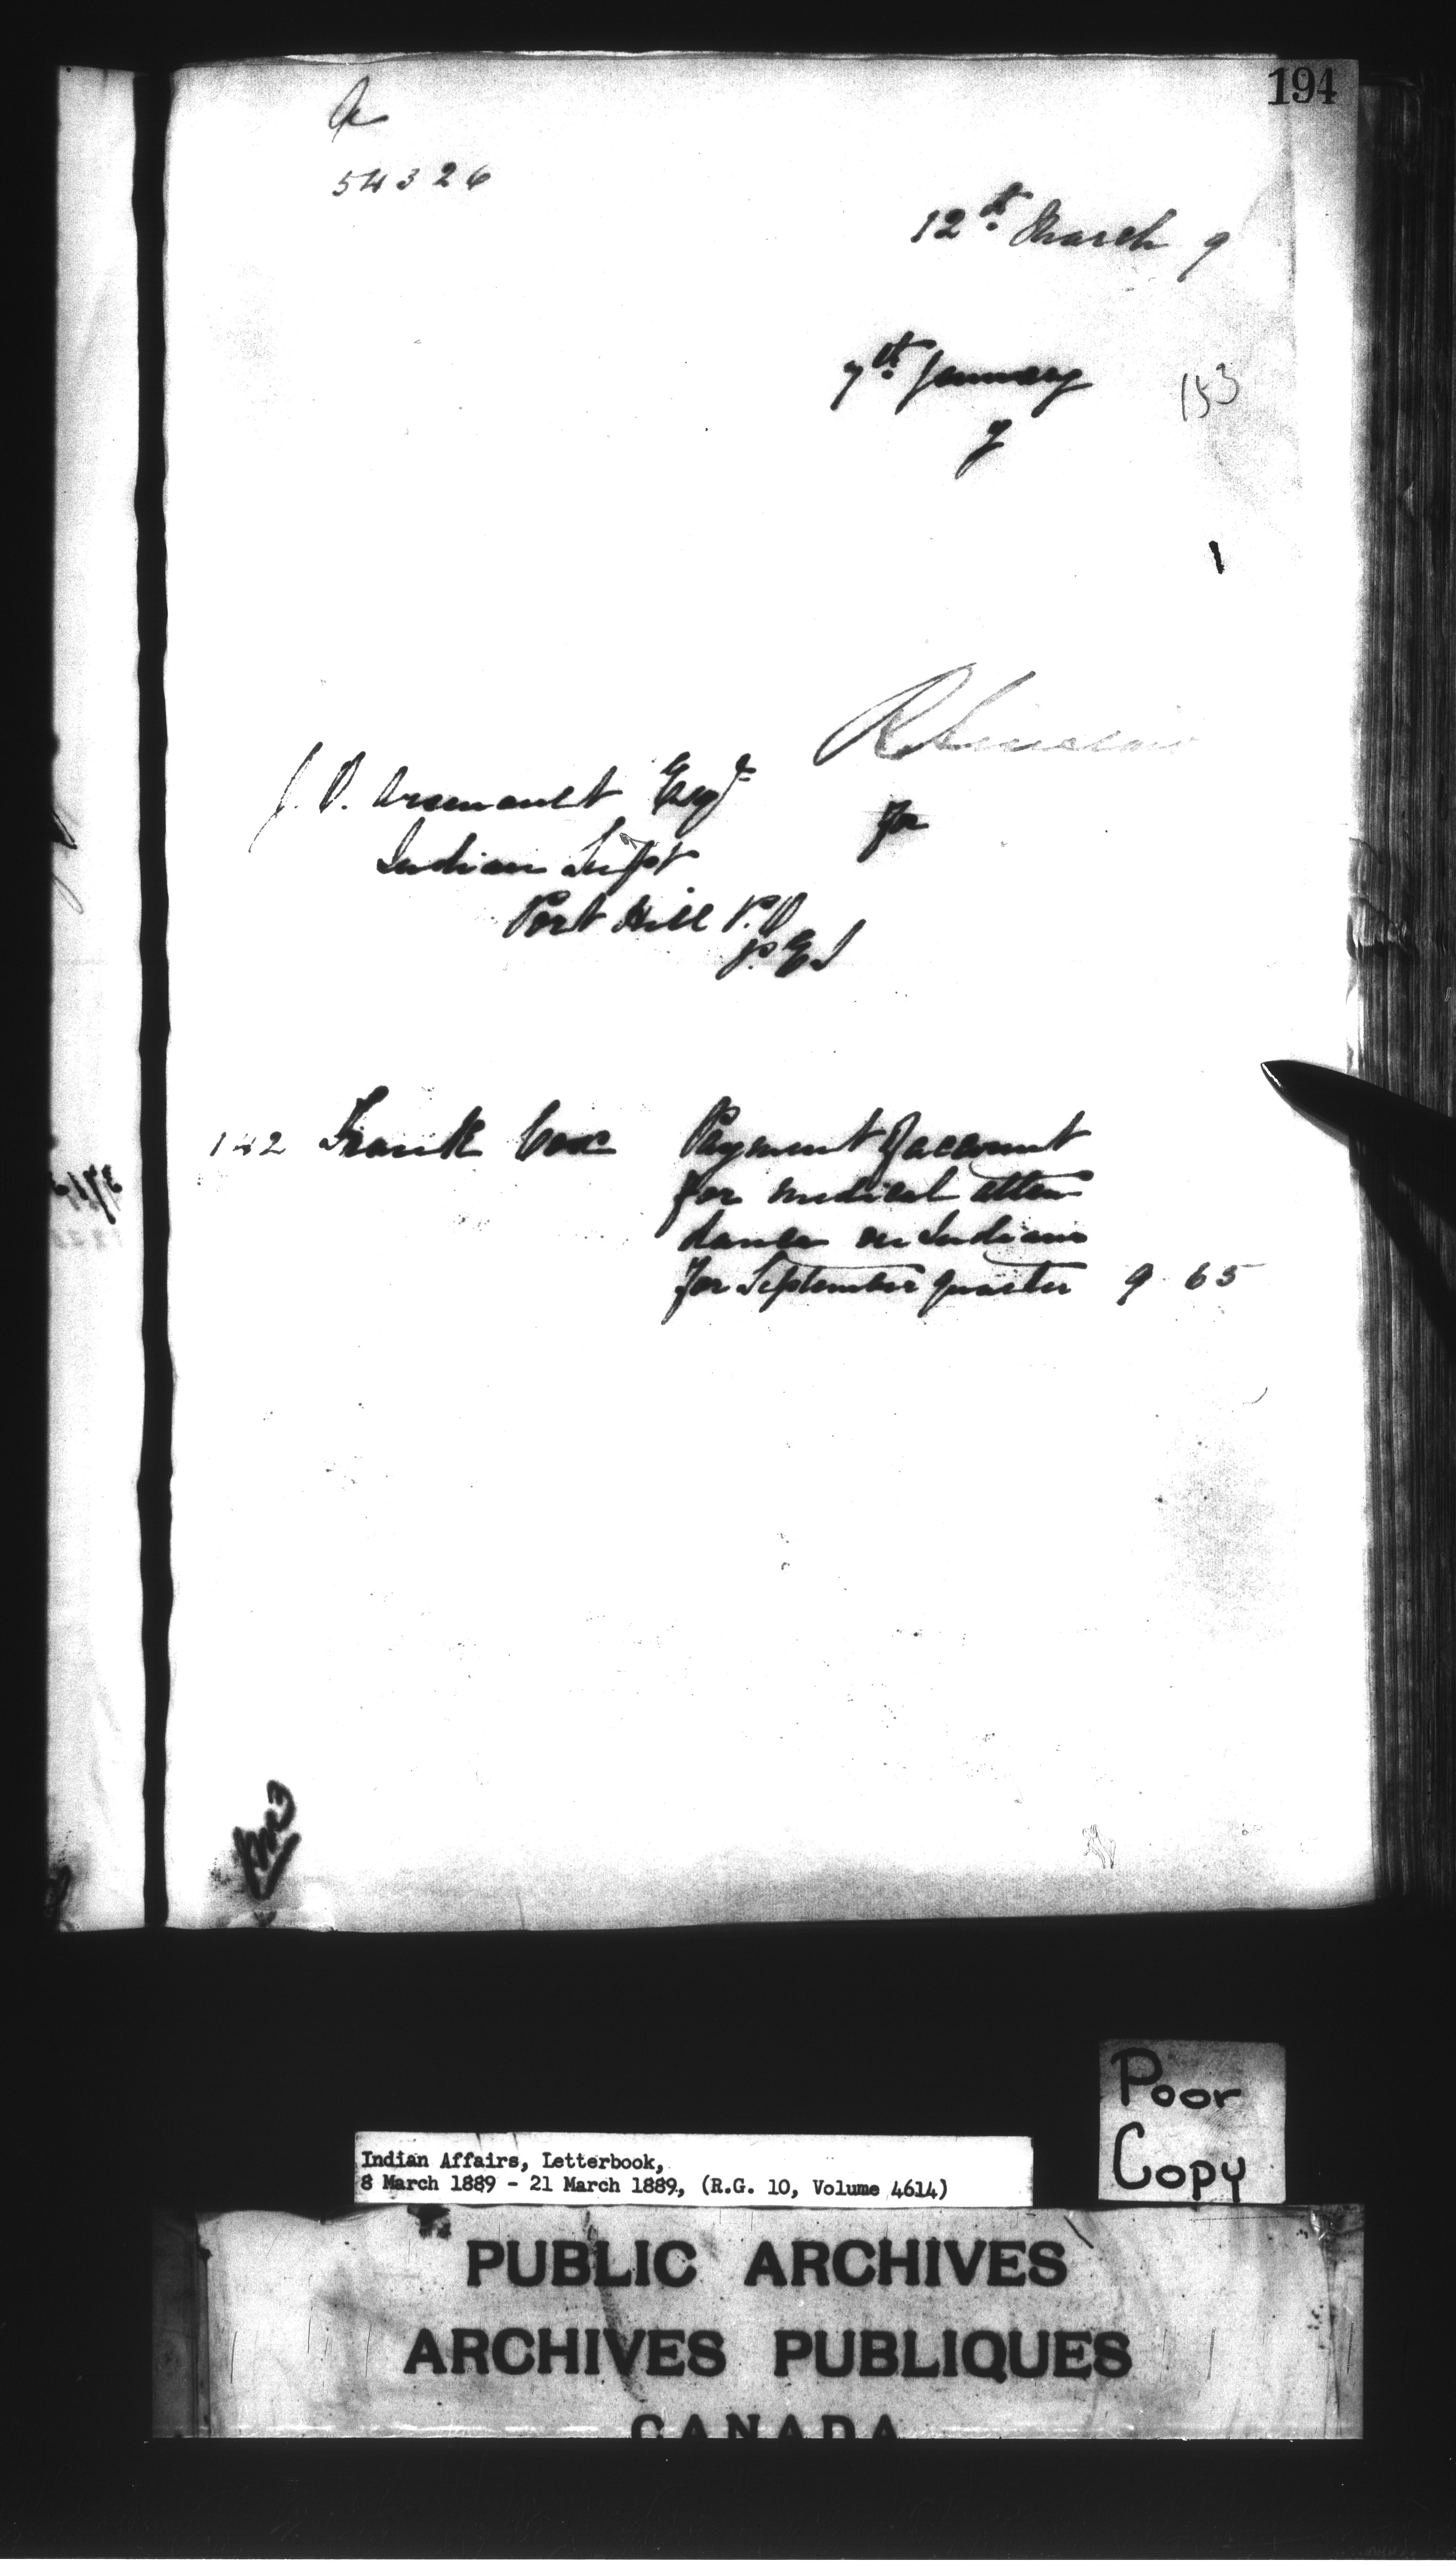 194
A
54326
12th March 9
7th January
9
153
R Sinclair
J. O. Arsenault Esqre
for
Indian Supt
Port Hill P.O
P.E.I
142 Frank Cox Payment of account
for medical atten
dance on Indians
for September quarter 9 65
Poor
Copy
Indian Affairs, Letterbook,
8 March 1889 - 21 March 1889, (R.G. 10, Volume 4614)
PUBLIC ARCHIVES
ARCHIVES PUBLIQUES
CANADA